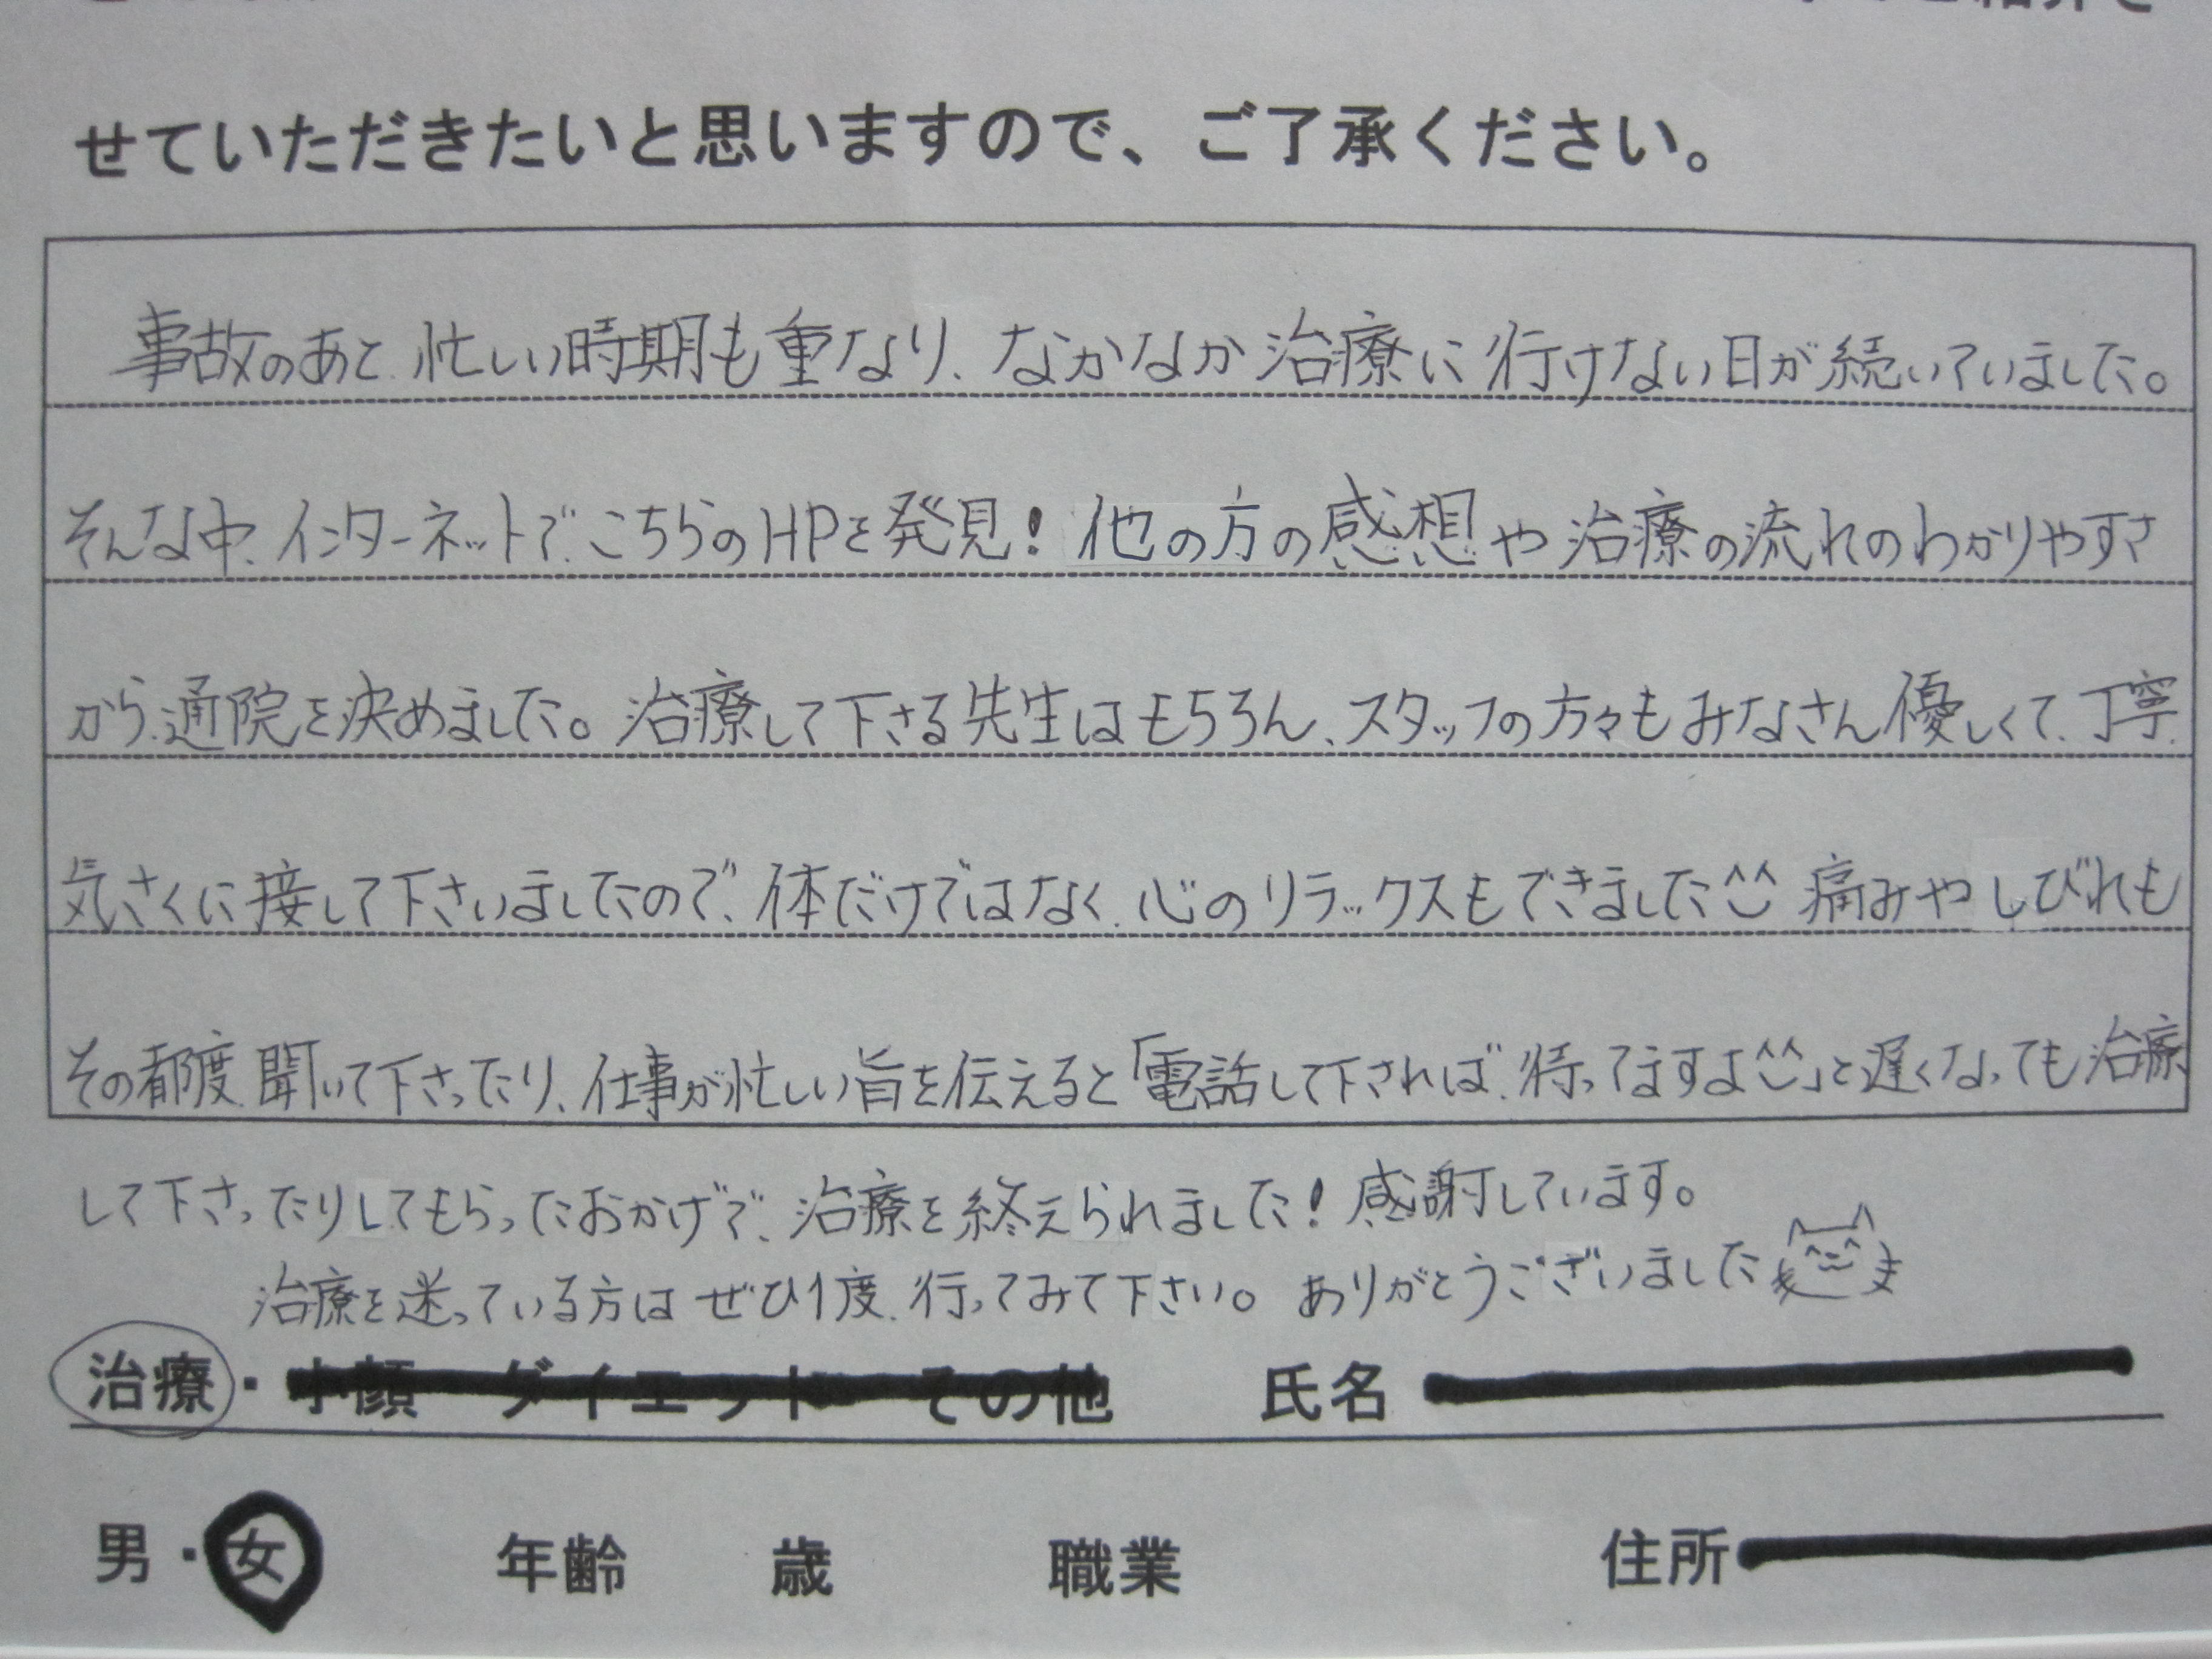 せていただきたいと思いますので、ご了承ください。
事故のあと、忙しい時期も重なり、なかなか治療に行けない日が続いていました。
そんな中、インターネットで、こちらのHPを発見！他の方の感想や治療の流れのわかりやすさ
から、通院を決めました。治療して下さる先生はもちろん、スタッフの方々もみなさん優しくて、丁寧、
気さくに接して下さいましたので、体だけではなく、心のリラックスもできました^^ 痛みやしびれも
その都度、聞いて下さったり、仕事が忙しい旨を伝えると「電話して下されば、待ってますよ^^」と遅くなっても治療
して下さったりしてもらったおかげで、治療を終えられました！感謝しています。
治療を迷っている方はぜひ1度、行ってみて下さい。ありがとうございました
治療・小顔 ダイエット その他 氏名
男・女 年齢 歳 職業 住所